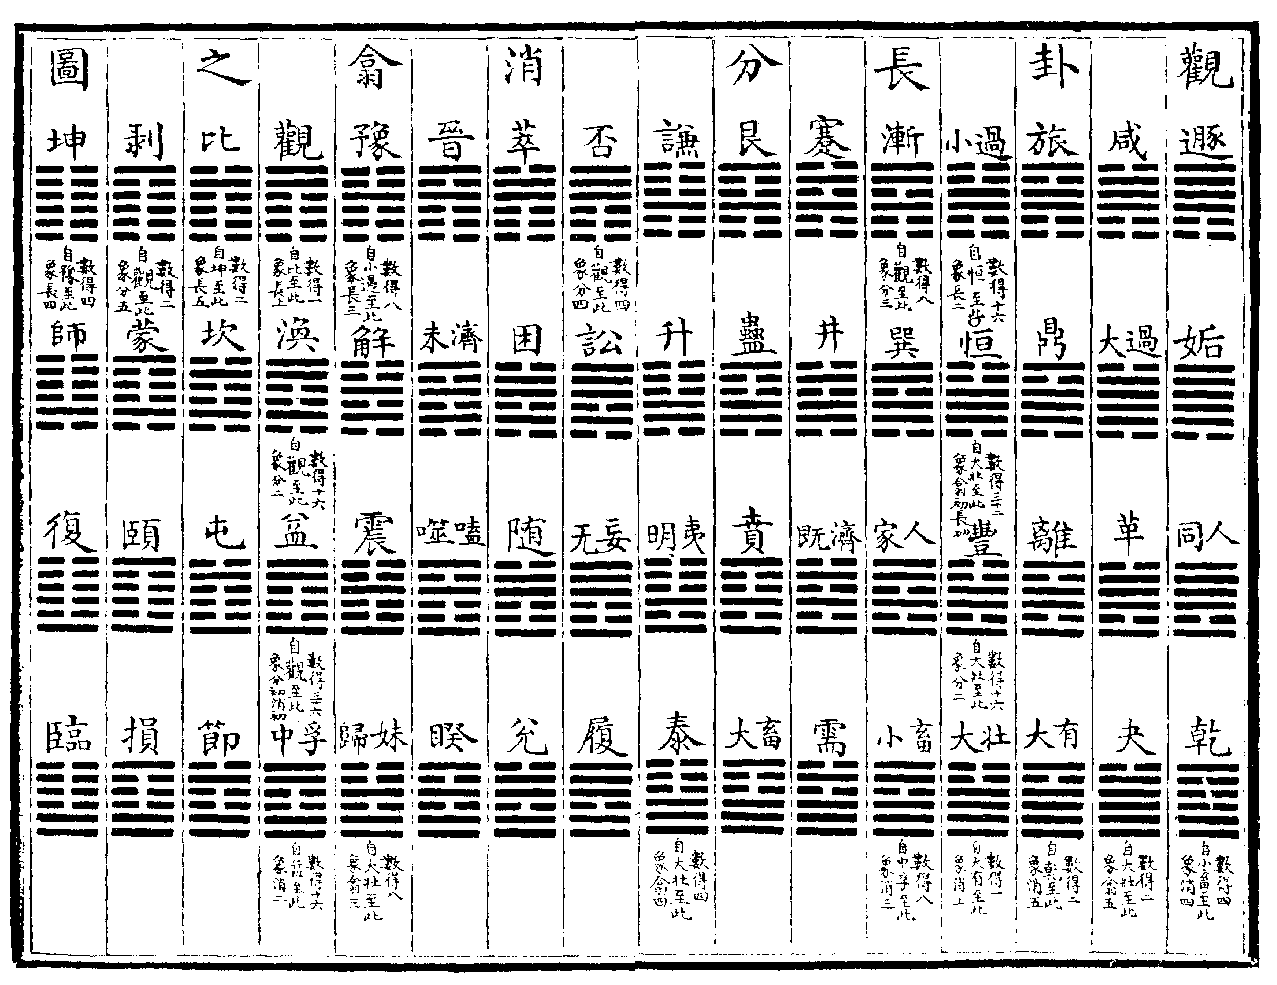 觀卦長分消翕之圖
遯 咸 旅 小過 漸 蹇 艮 謙 否 萃 晉 豫 觀 比 剥 坤
數得十六
自恒至此
象長二
數得八
自觀至此
象分三
數得四
自觀至此
象分四
數得八
自小過至此
象長三
數得一
自比至此
象長上
數得二
自坤至此
象長五
數得二
自觀至此
象分五
數得四
自豫至此
象長四
姤 大過 鼎 恒 巽 井 蠱 升 訟 困 未濟 解 渙 坎 蒙 師
數得三十二
自大壯至此
象翕初長初
數得十六
自觀至此
象分二
同人 革 離 豐 家人 既濟 賁 明夷 无妄 随 噬嗑 震 益 屯 頤 復
數得十六
自大壯至此
象分二
數得
自觀至此
象分初消初
乾 夬 大有 大壯 小畜 需 大畜 泰 履 兊 睽 歸妹 中孚 節 損 臨
數得四
自小畜至此
象消四
數得二
自大壯至此
象翕五
數得二
自乾至此
象消五
數得一
自大有至此
象消上
數得八
自中孚至此
象消三
數得四
自大壯至此
象翕四
數得八
自大壯至此
象翕三
數得十六
自益至此
象消二